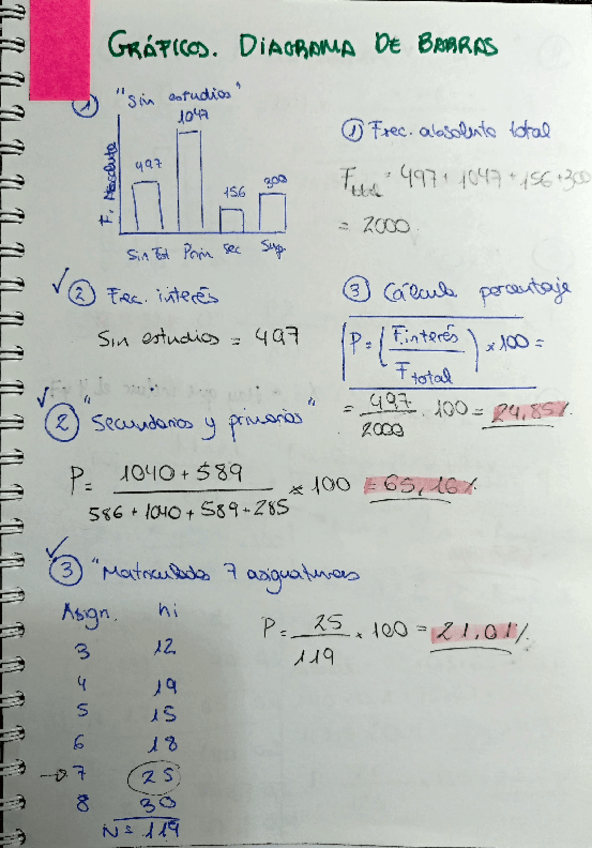 GRÁFICOS. DIAGRAMA DE BARRAS
① "Sin estudios"
F. Absoluta
497
1047
156
300
Sin Est Prim Sec Sup.
① Frec. absoluta total
F total = 497 + 1047 + 156 + 300
= 2000
② Frec. interés
Sin estudios = 497
③ Cálculo porcentaje
P = ( F.interés / F total ) × 100 =
= 497 / 2000 · 100 = 24,85%
② "Secundarios y primarios"
P = 1040 + 589 / 586 + 1040 + 589 + 285 × 100 = 65,16%
③ "Matriculados 7 asignaturas
Asign. ni
3 12
4 19
5 15
6 18
→ 7 25
8 30
N = 119
P = 25 / 119 × 100 = 21,01%